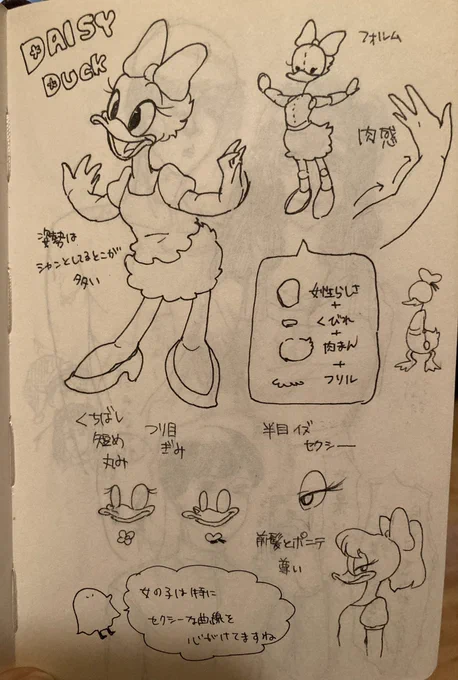 DAISY
DUCK
フォルム
肉感
姿勢は
シャンとしてるとこが
多い
女性らしさ
+
くびれ
+
肉まん
+
フリル
くちばし
短め
丸み
つり目
ぎみ
半目イズ
セクシー
前髪とポニテ
尊い
女の子は特に
セクシーな曲線を
心がけてますね